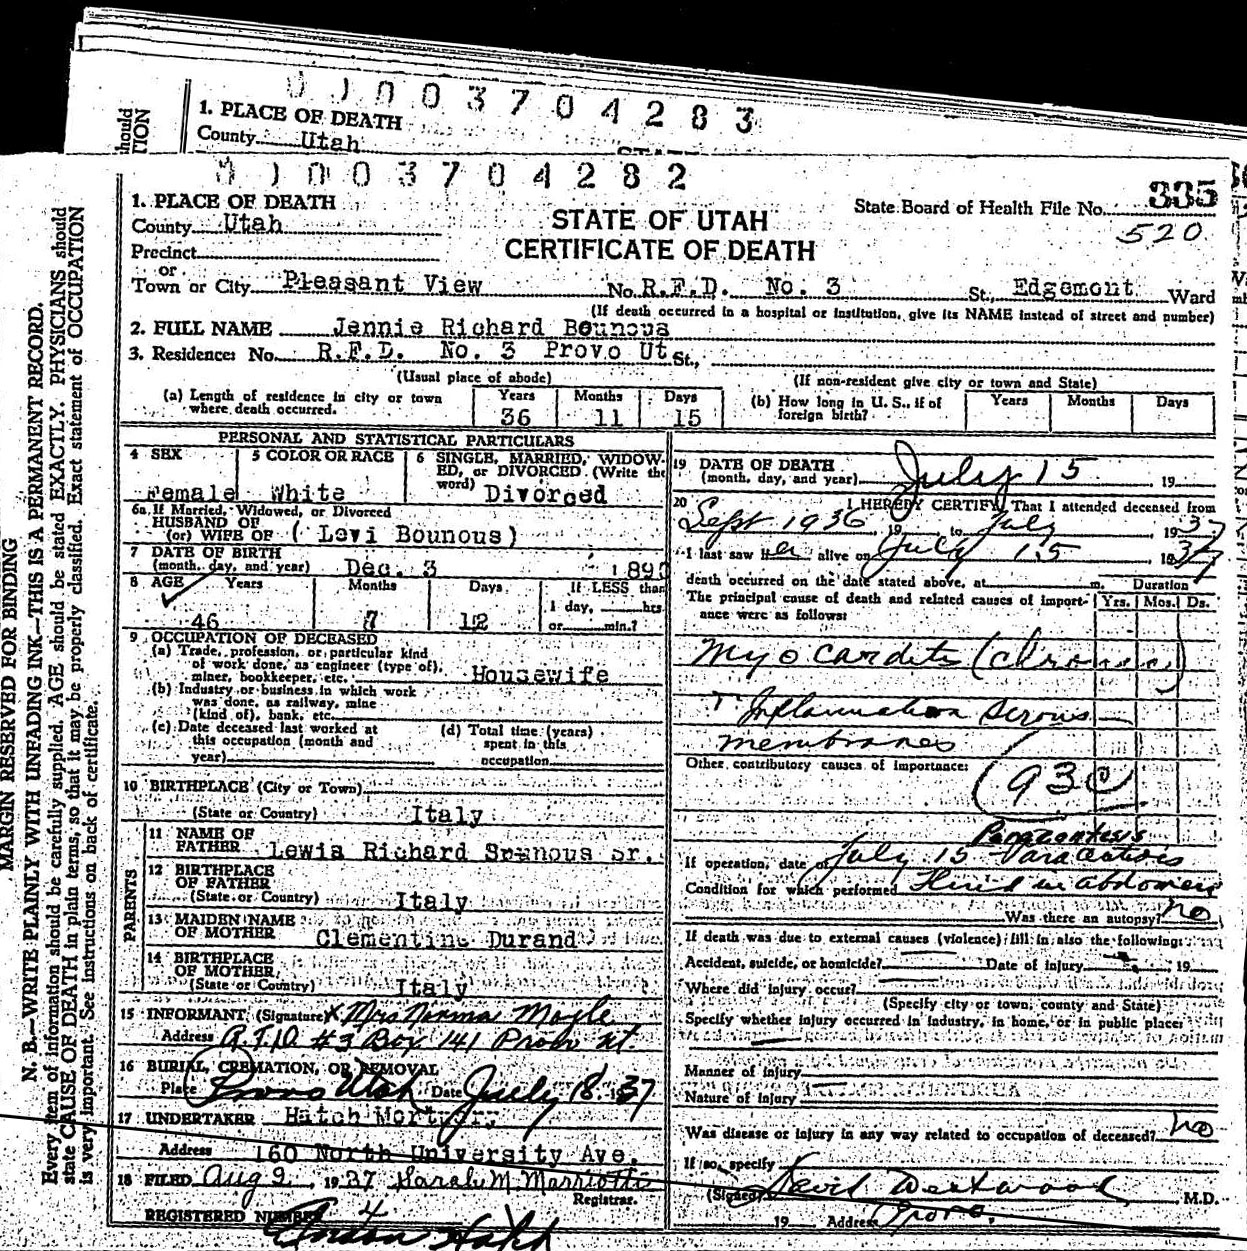 0 0 3 7 0 4 2 8 3
1. PLACE OF DEATH
County Utah
should
TION
0 0 3 7 0 4 2 8 2
335
1. PLACE OF DEATH
STATE OF UTAH
State Board of Health File No.
County Utah
CERTIFICATE OF DEATH
520
Precinct
or
Town or City Pleasant View No. R.F.D. No. 3 St., Edgemont Ward
(If death occurred in a hospital or institution, give its NAME instead of street and number)
2. FULL NAME Jennie Richard Bounous
3. Residence: No. R.F.D. No. 3 Provo Ut St.,
(Usual place of abode) (If non-resident give city or town and State)
(a) Length of residence in city or town where death occurred. Years 36 Months 11 Days 15 (b) How long in U. S., if of foreign birth? Years Months Days
PERSONAL AND STATISTICAL PARTICULARS
4 SEX Female
5 COLOR OR RACE White
6 SINGLE, MARRIED, WIDOWED, or DIVORCED. (Write the word) Divorced
6a. If Married, Widowed, or Divorced
HUSBAND OF
(or) WIFE OF (Levi Bounous)
7 DATE OF BIRTH
(month, day, and year) Dec. 3 1890
8 AGE Years Months Days If LESS than
1 day, hrs
46 7 12 or min.?
9 OCCUPATION OF DECEASED
(a) Trade, profession, or particular kind
of work done, as engineer (type of),
miner, bookkeeper, etc. Housewife
(b) Industry or business in which work
was done, as railway, mine
(kind of), bank, etc.
(c) Date deceased last worked at
this occupation (month and
year)
(d) Total time (years)
spent in this
occupation
10 BIRTHPLACE (City or Town)
(State or Country) Italy
PARENTS
11 NAME OF
FATHER Lewis Richard Bounous Sr.
12 BIRTHPLACE
OF FATHER
(State or Country) Italy
13 MAIDEN NAME
OF MOTHER Clementine Durand
14 BIRTHPLACE
OF MOTHER
(State or Country) Italy
15 INFORMANT (Signature) X Mrs Norma Moyle
Address R.F.D. #3 Box 141 Provo Ut.
16 BURIAL, CREMATION, OR REMOVAL
Place Provo Utah Date July 18 1937
17 UNDERTAKER Hatch Mortuary
Address 160 North University Ave.
18 FILED Aug 2, 1937 Sarah M. Marriotti
Registrar.
REGISTERED NUMBER 4
19 DATE OF DEATH
(month, day, and year) July 15 19
20 I HEREBY CERTIFY, That I attended deceased from
Sept 1936 19 to July 1937
I last saw her alive on July 15 1937
death occurred on the date stated above, at m. Duration
The principal cause of death and related causes of importance were as follows: Yrs. Mos. Ds.
Myocardits (chronic)
Inflammation serous
membranes
Other contributory causes of importance:
(93c)
Paracentesis
If operation, date of July 15 Paracentesis
Condition for which performed Fluid in abdomen
Was there an autopsy? no
If death was due to external causes (violence) fill in also the following:
Accident, suicide, or homicide? Date of injury 19
Where did injury occur?
(Specify city or town, county and State)
Specify whether injury occurred in industry, in home, or in public place:
Manner of injury
Nature of injury
Was disease or injury in any way related to occupation of deceased? no
If so, specify
(Signed) David Westwood M.D.
19 Address Provo.
MARGIN RESERVED FOR BINDING
N. B.—WRITE PLAINLY WITH UNFADING INK—THIS IS A PERMANENT RECORD.
Every item of information should be carefully supplied. AGE should be stated EXACTLY. PHYSICIANS should
state CAUSE OF DEATH in plain terms, so that it may be properly classified. Exact statement of OCCUPATION
is very important. See instructions on back of certificate.